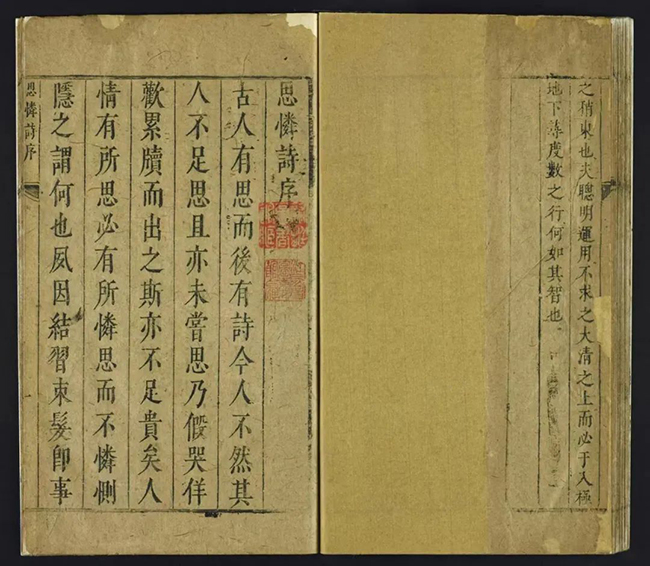 之稍東也夫聰明運用不求之大清之上而必于入極
地下尋度數之行何如其智也
思憐詩序
古人有思而後有詩今人不然其
人不足思且亦未嘗思乃假哭佯
歡累牘而出之斯亦不足貴矣人
情有所思必有所憐思而不憐惻
隱之謂何也夙因結習束髮即事
思憐詩序